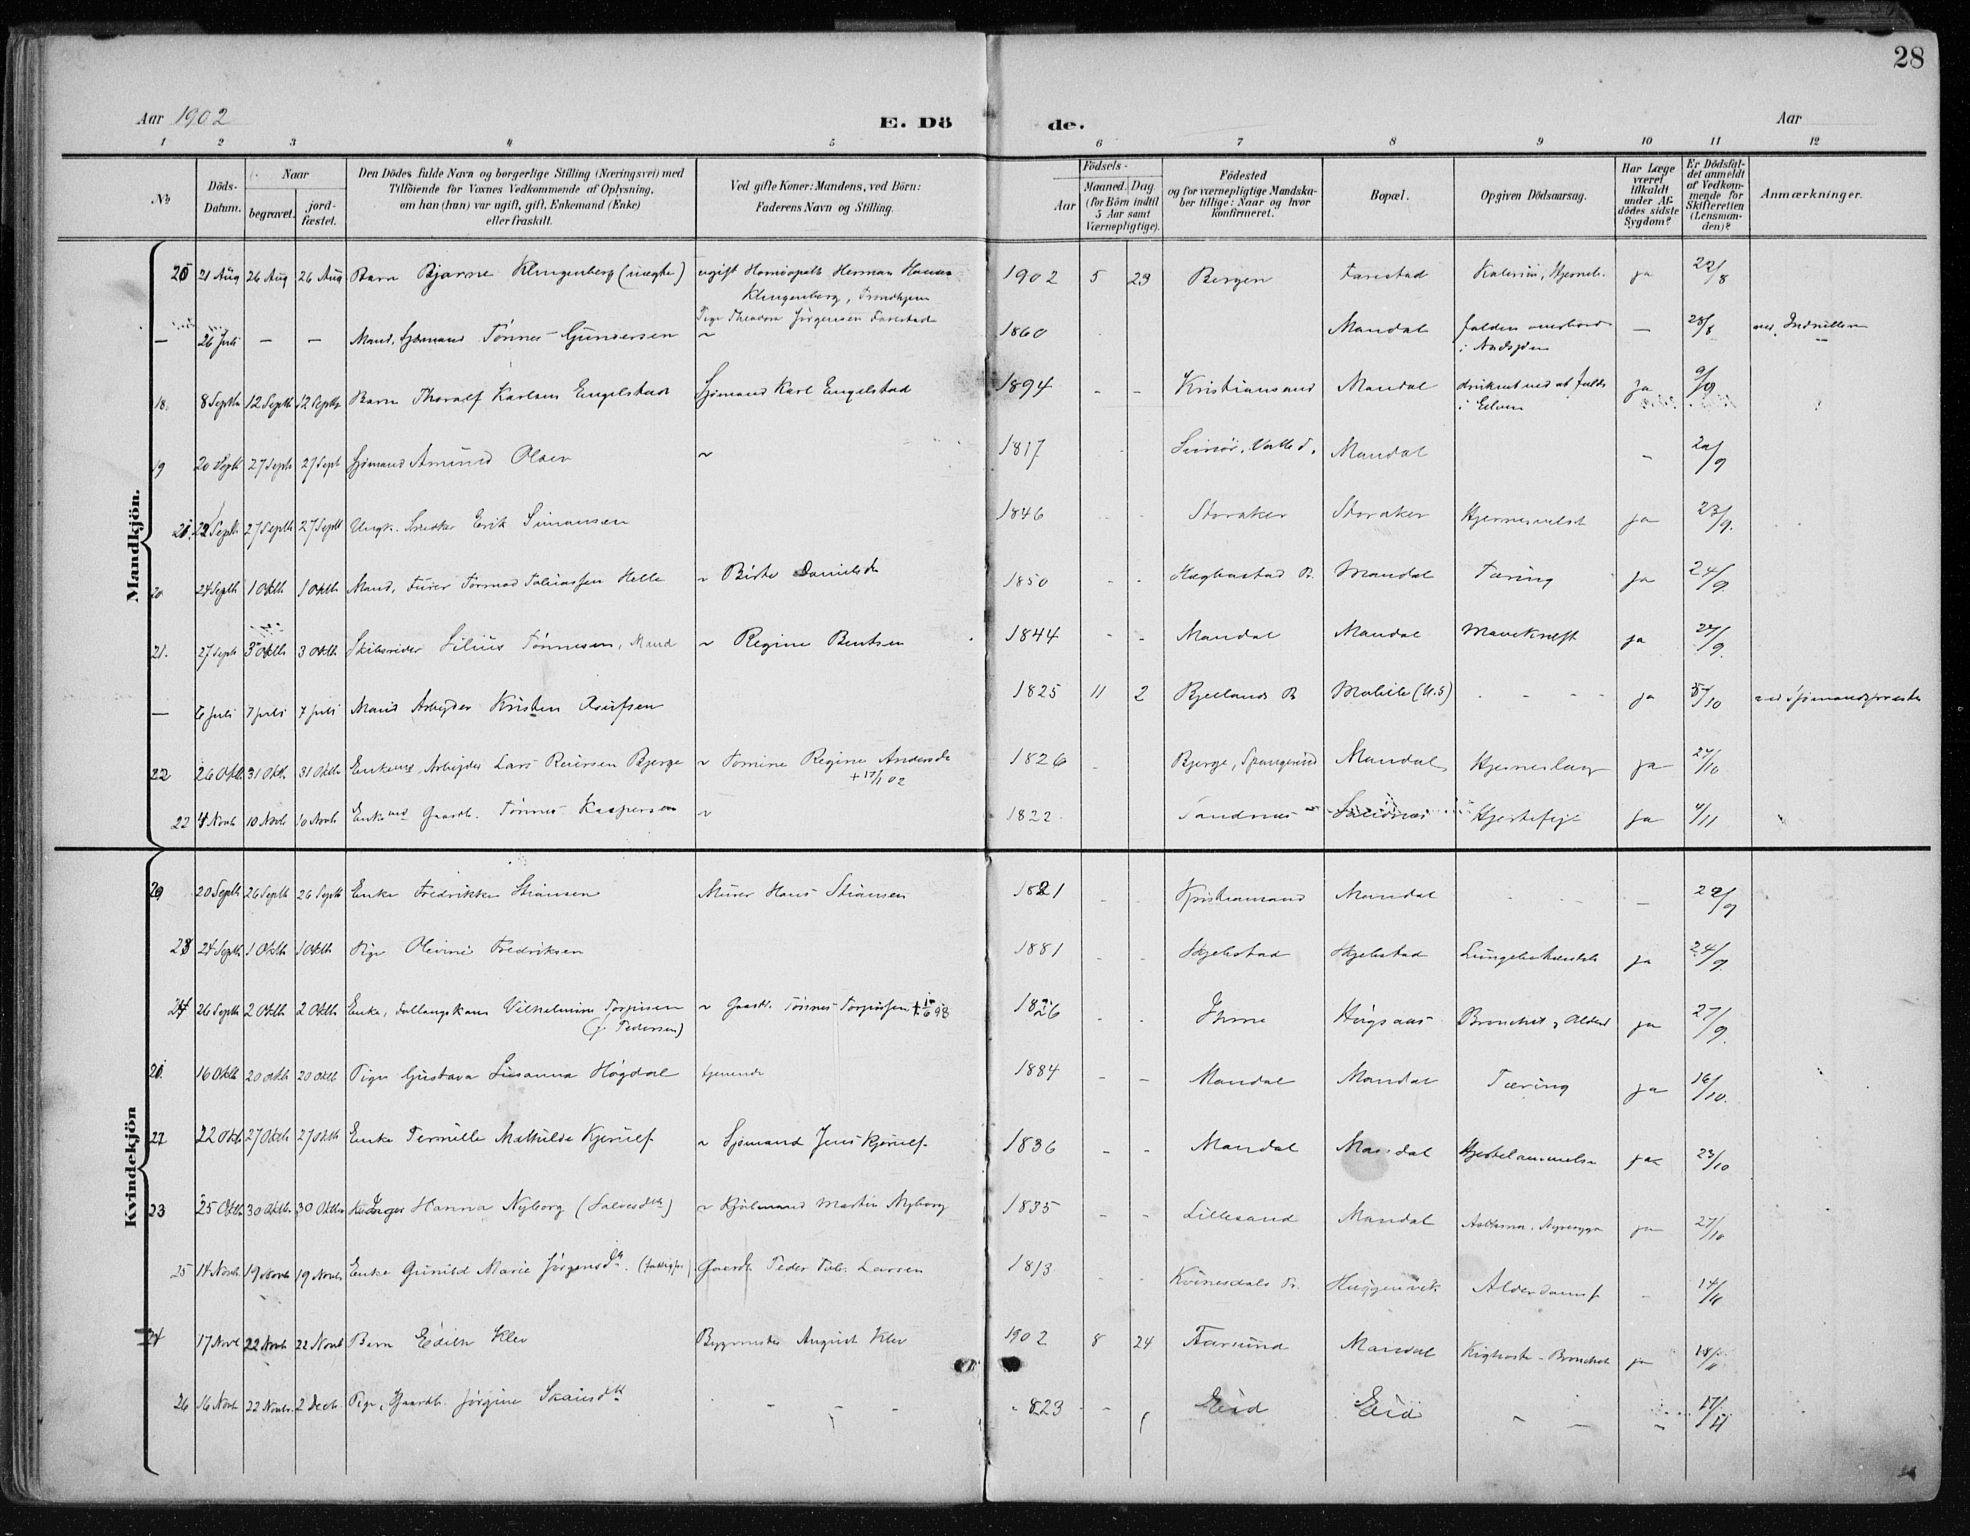 28
Aar 1902 E. Dö de. Aar
1 2 3 4 5 6 7 8 9 10 11 12
№ Döds-Datum. Naar begravet. jord-fæstet. Den Dödes fulde Navn og borgerlige Stilling (Næringsvei) med Tilföiende for Voxnes Vedkommende af Oplysning, om han (hun) var ugift, gift, Enkemand (Enke) eller fraskilt. Ved gifte Koner: Mandens, ved Börn: Faderens Navn og Stilling. Födsels- Aar Maaned. Dag (for Börn indtil 5 Aar samt Værnepligtige). Födested og for værnepligtige Mandskaber tillige: Naar og hvor konfirmeret. Bopæl. Opgiven Dödsaarsag. Har Læge været tilkaldt under Afdödes sidste Sygdom? Er Dödsfaldet anmeldt af Vedkommende for Skifteretten (Lensmanden)? Anmærkninger.
Mandkjön.
20 21 Aug 26 Aug 26 Aug Barn Bjarne Klingenberg (uægte) ugift Homöopath Herman Klingenberg, Trondhjem 1902 5 23 Bergen Farestad ja 22/8
Pige Theodora Jörgensen Farestad
— 26 Juli — — Mand, Sjømand Tønnes Gundersen ~ 1860 Mandal falden overbord i Nordsjøen — 28/8
18. 8 Septb 12 Septb 12 Septb Barn Thoralf Karlsen Engelstad Sjømand Karl Engelstad 1894 - - Kristianssand Mandal druknet ved at falde i Elven ja 9/9
19 20 Septb 27 Septb 27 Sept Sjømand Amund Olsen ~ 1817 Mandal - 20/9
21. 22 Septb 27 Septb 27 Septb Ungk. Snedker Erik Simonsen 1846 Storaker Storaker Hjernesvulst ja 23/9.
20 24 Septb 1 Oktb 1 Oktb Mand, Tormod Tobiassen Helle ~ Birte Danielsdr 1850 - - Hægbostad P. Mandal Tæring ja 24/9.
21. 27 Septb 3 Oktb 3 Oktb Skibsreder Silius Tønnesen, Mand ~ Regine Bentsen 1844 - - Mandal Mandal Mavekræft ja 27/9.
— 6 Juli 7 Juli 7 Juli Mand Arbejder Kristen 1825 11 2 Bjellands P. Mobile (U.S) - - - ja 5/10 ved Sjømandspræsten
22 26 Oktb 31 Oktb 31 Oktb Enkemd Arbejder Lars Reiersen Bjerge ~ Tomine Regine Andersdr + 17/1 02 1826 - Bjerge, Spangereid Mandal Hjerneslag ja 27/10
22 4 Novb 10 Novb 10 Novb Enkemd Gaardb. Tönnes Kaspersen ~ 1822 Sandnæs Sandnæs Hjertefejl ja 4/11
Kvindekjön
20 20 Septb 26 Septb 26 Septb Enke Fredrikke Stiansen Murer Hans Stiansen 1821 - - Kristianssand Mandal - - - — 22/9
23 24 Septb 1 Oktb 1 Oktb Pige Olevine Fredriksen 1881 - - Skjebstad Skjebstad ja 24/9
24 26 Septb 2 Oktb 2 Oktb Enke, Vilhelmine Torjusen (f. Pedersen) ~ Gaardb. Tönnes Torjussen 1826 Ihme Høgsaas Bronchit, Alderd ja 27/9.
21. 16 Oktb 20 Oktb 20 Oktb Pige Gustava Susanna Høgdal tjenende 1884 - - Mandal Mandal Tæring ja 16/10.
22 22 Oktb 27 Oktb 27 Oktb Enke Pernille Mathilde Kjerulf ~ Sjømand Jens Kjerulf 1836 - - Mandal Mandal Hjertelammelse ja 23/10
23 25 Oktb 30 Oktb 30 Oktb Inger Hanna Nyborg (Salvesdtr) ~ Martin Nyborg 1835 - - Lillesand Mandal ja 27/10
25 14 Novb 19 Novb 19 Novb Enke Gunild Marie Jørgensdtr. Gaardb. Peder Tob. Larsen 1813 - - Kvinesdals P. Alderdomsf. - 14/11
24 17 Novb 22 Novb 22 Novb Barn Edith Klev Bygmester August Klev 1902 8 24 Farsund Mandal Kighoste - Bronchit ja 18/11
26 16 Novb 22 Novb 2 Decb Pige, Gaardb. Jørgine - - - 1823 - Eid Eid - - - 17/11